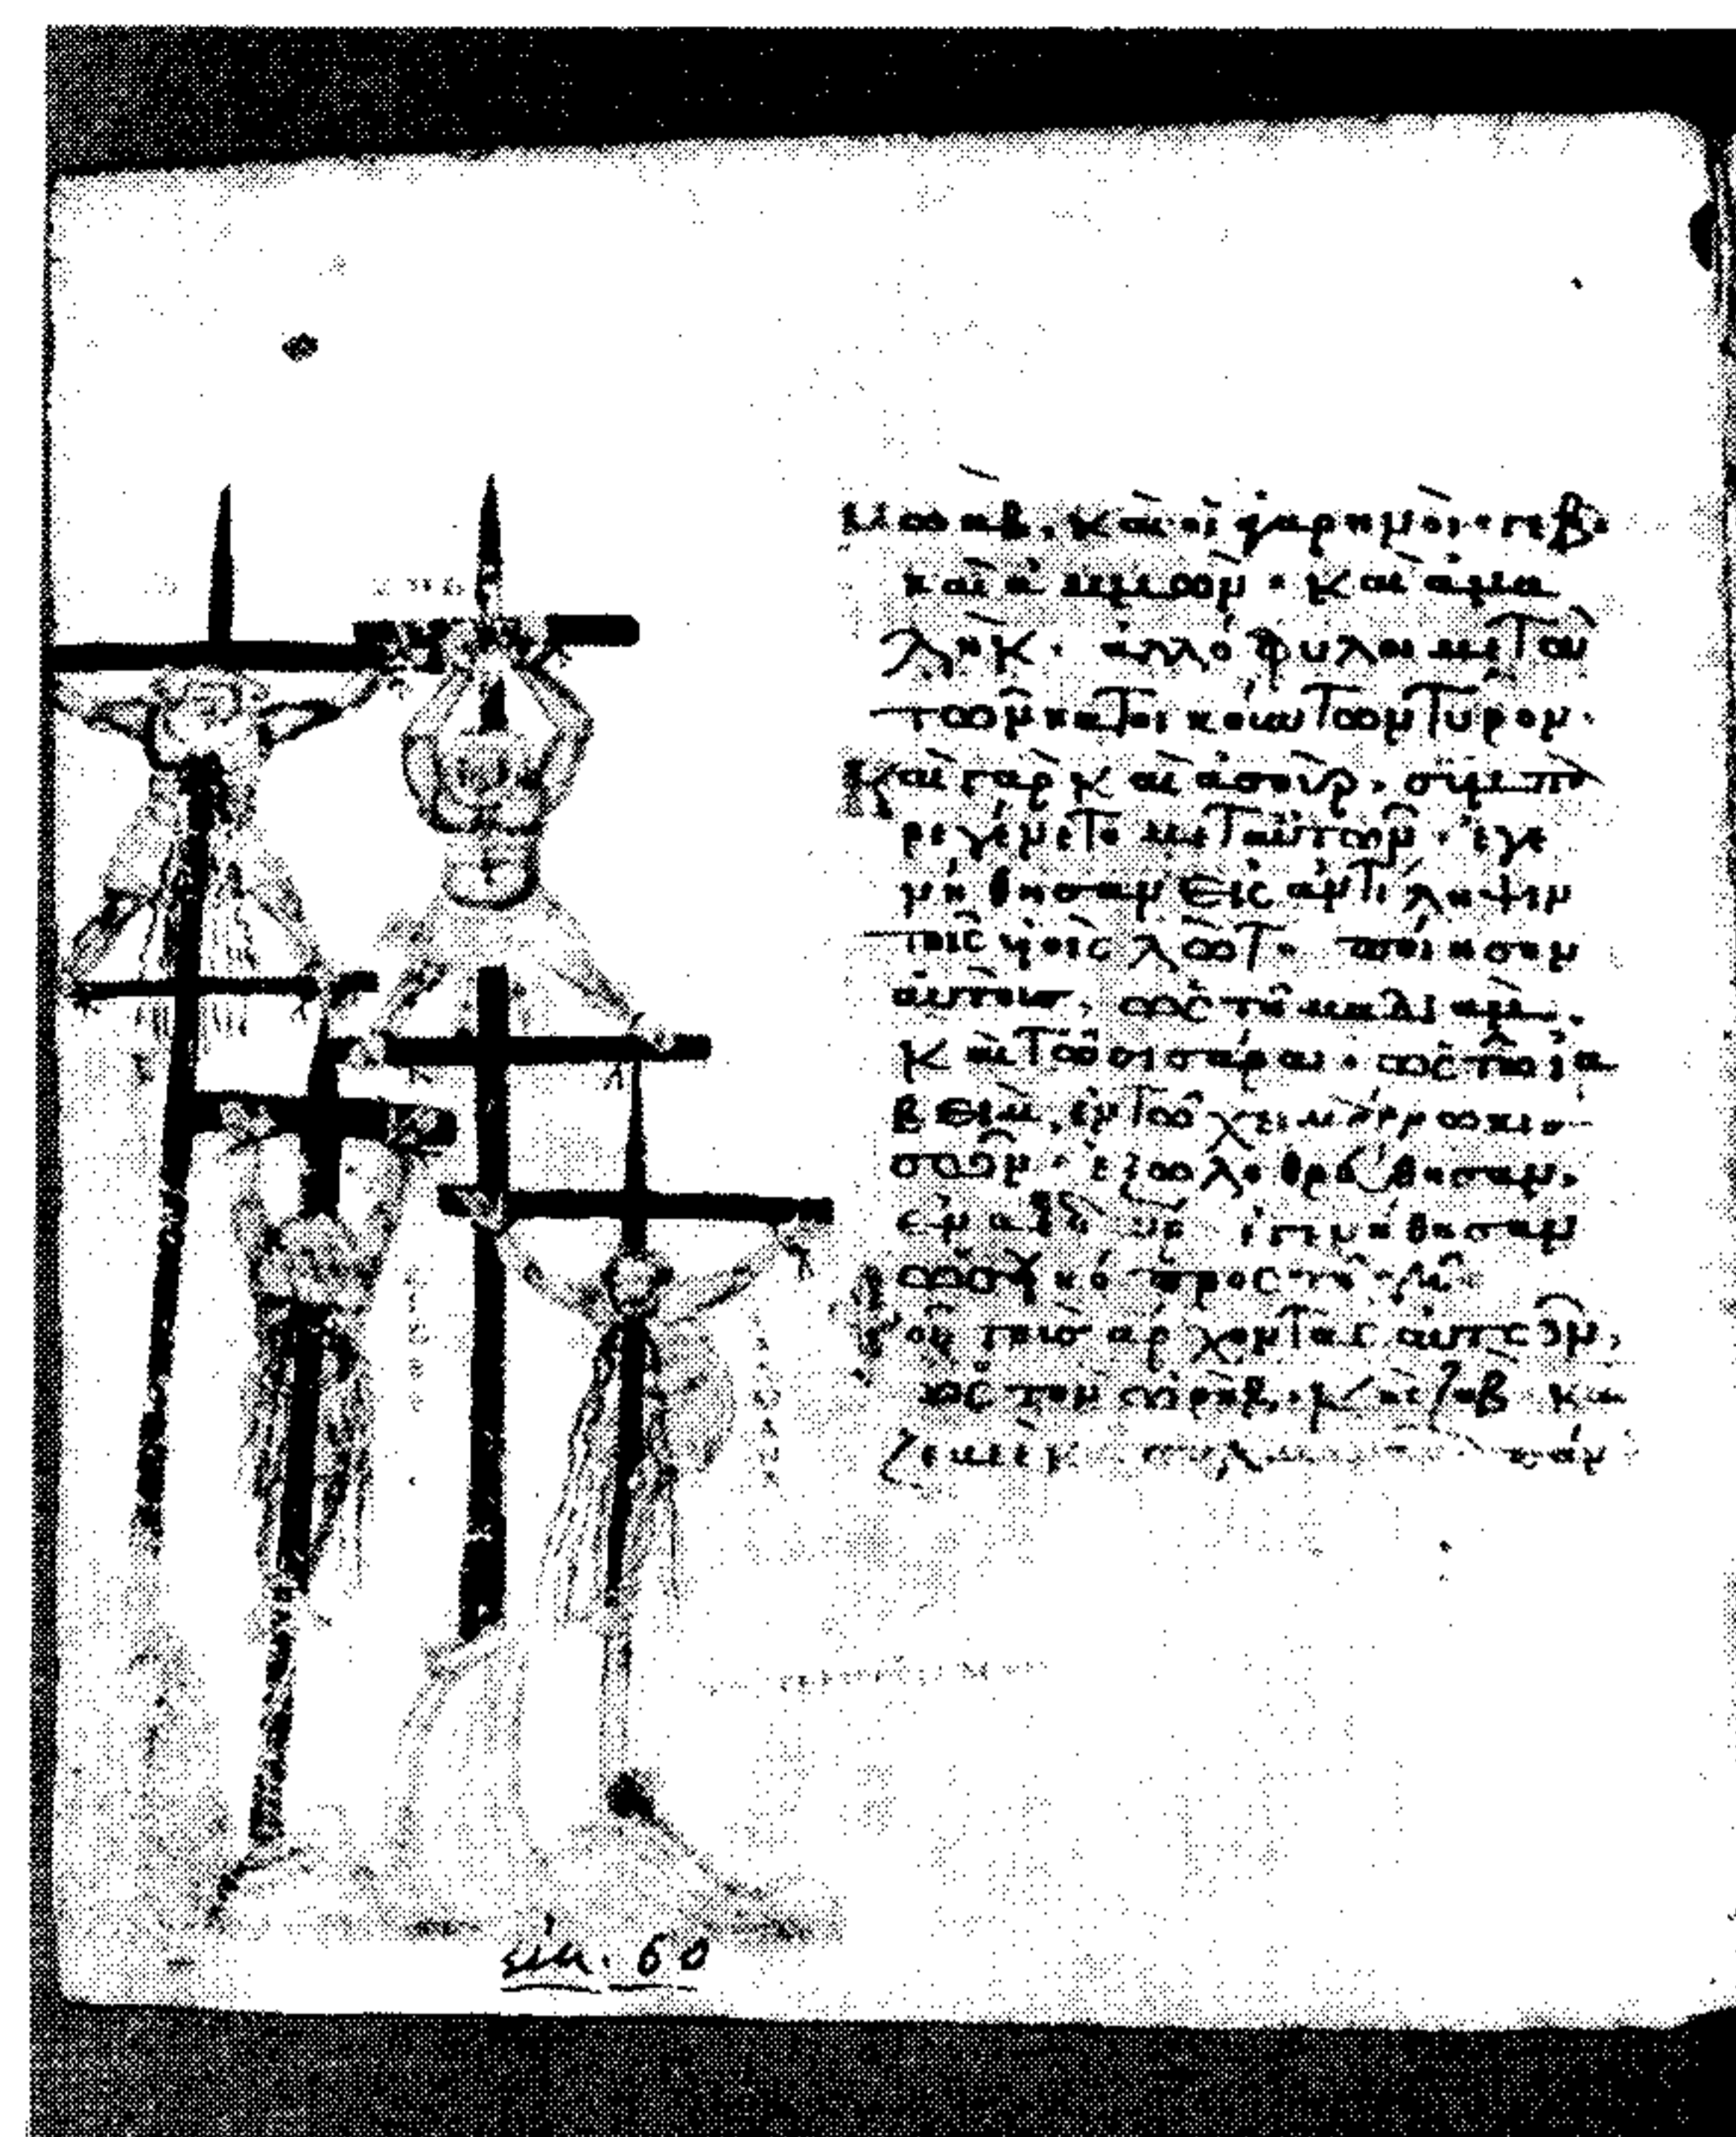 Μωὰβ, καὶ οἱ ἀγαρηνοὶ· γεβὰλ
καὶ ἀμμὼν· καὶ ἀμα
λὴκ· ἀλλόφυλοι μετὰ
τῶν κατοικούντων τύρον·
Καὶ γὰρ καὶ ἀσσοὺρ, συμπα
ρεγένετο μετ αὐτῶν· ἐγε
νήθησαν εἰς ἀντίληψιν
τοῖς υἱοῖς λώτ· ποίησον
αὐτοῖς, ὡς τῆ μαδιὰμ,
καὶ τῶ σισάρα· ὡς τῶ ἰα
βεὶμ, ἐν τῶ χειμάρρω κισ
σῶν· ἐξωλοθρεύθησαν
ἐν ἀενδώρ· ἐγενήθησαν
ὡσεὶ κόπρος τῆ γῆ·
Θοῦ τοὺς ἄρχοντας αὐτῶν,
ὡς τὸν ὠρὴβ, καὶ ζὴβ καὶ
ζεβεὲ κ
εικ. 60